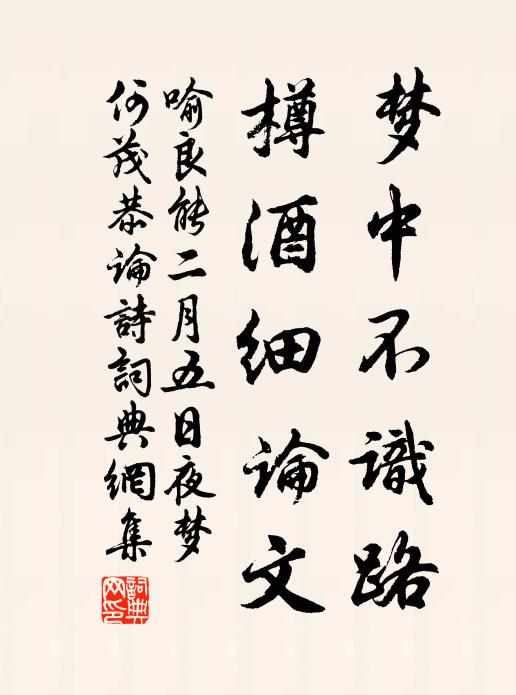 梦中不識路
樽酒細论文
喻良能二月五日夜梦
何茂恭论詩詞典網集
詞典网印